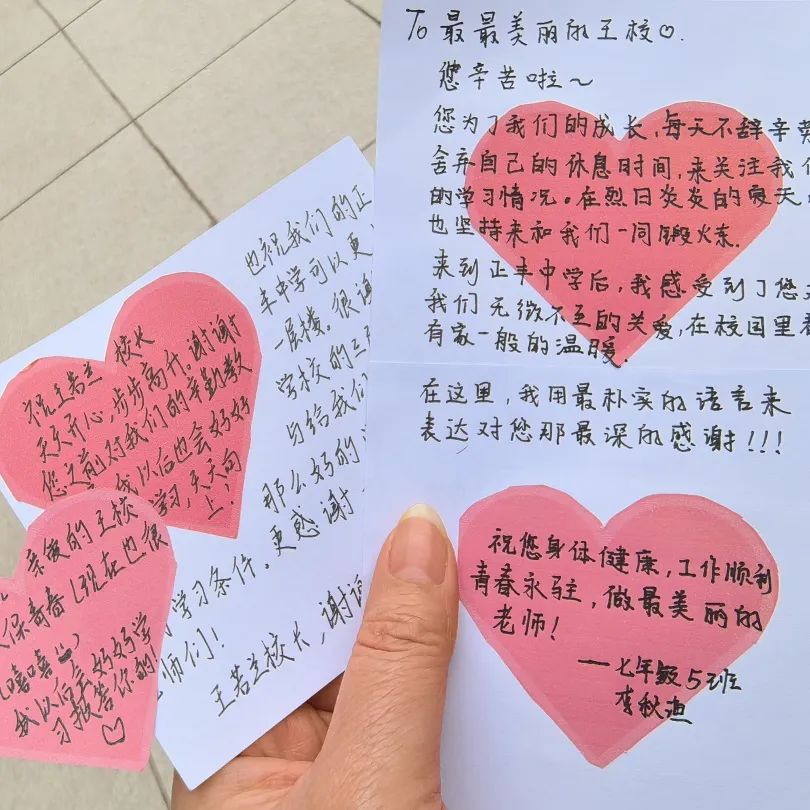 To 最最美丽的王校♡.
您辛苦啦～
您为了我们的成长,每天不辞辛劳
舍弃自己的休息时间,来关注我们
的学习情况。在烈日炎炎的夏天
也坚持来和我们一同锻炼.
来到正丰中学后,我感受到了您
我们无微不至的关爱,在校园里
有家一般的温暖.
在这里,我用最朴实的语言来
表达对您那最深的感谢!!!
祝您身体健康,工作顺利
青春永驻,做最美丽的
老师!
——七年级5班
李秋
也祝我们的正
丰中学可以更
一层楼。很谢
学校的王
与给我们
那么好的
学习条件。更感谢
师们!
王若兰校长,谢谢
祝王若兰 校长
天天开心,步步高升。谢谢
您之前对我们的辛勤教
我以后也会好好
学习,天天向
上!
亲爱的王校
保青春(现在也很
(嘻嘻)
我以后会好好学
习报答你的♡